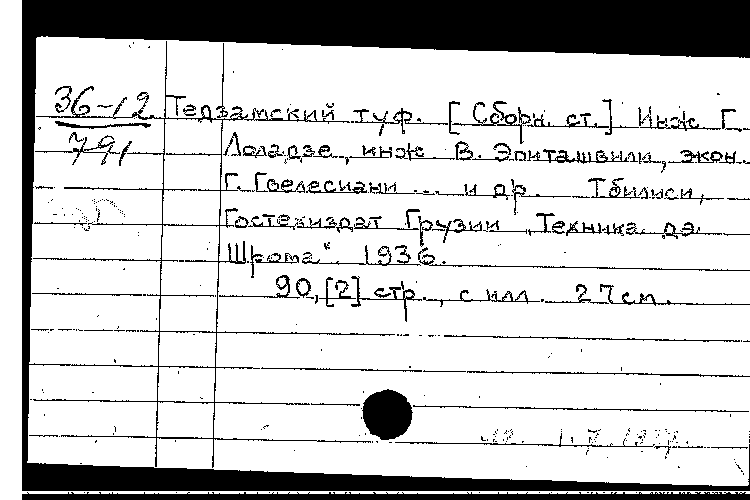 36-12 Тедзамский туф. [Сборн. ст.] Инж Г.
791 Лоладзе, инж. В. Эриташвили, экон.
Г. Гвелесиани ... и др. Тбилиси,
Гостехиздат Грузии „Техника да
Шрома“. 1936.
90, [2] стр., с илл. 27см.
1.7.1937.